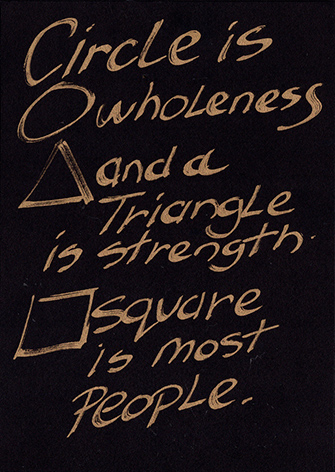 Circle is
wholeness
and a
Triangle
is strength.
square
is most
People.